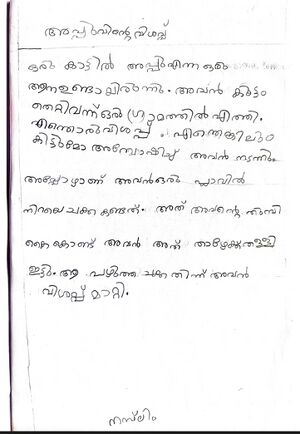 അപ്പുവിന്റെ വിശപ്പ്
ഒരു കാട്ടിൽ അപ്പു എന്ന ഒരു
ആന ഉണ്ടായിരുന്നു. അവൻ കൂട്ടം
തെറ്റി വന്ന് ഒരു ഗ്രാമത്തിൽ എത്തി.
എന്തൊരു വിശപ്പ്. എന്തെങ്കിലും
കിട്ടുമോ അന്വേഷിച്ച് അവൻ നടന്നു.
അപ്പോഴാണ് അവൻ ഒരു പ്ലാവിൽ
നിറയെ ചക്ക കണ്ടത്. അത് അവന്റെ തുമ്പി
കൈ കൊണ്ട് അവൻ അത് താഴേക്ക് തള്ളി
ഇട്ടു. ആ പഴുത്ത ചക്ക തിന്ന് അവൻ
വിശപ്പ് മാറ്റി.
നസ്ലിം